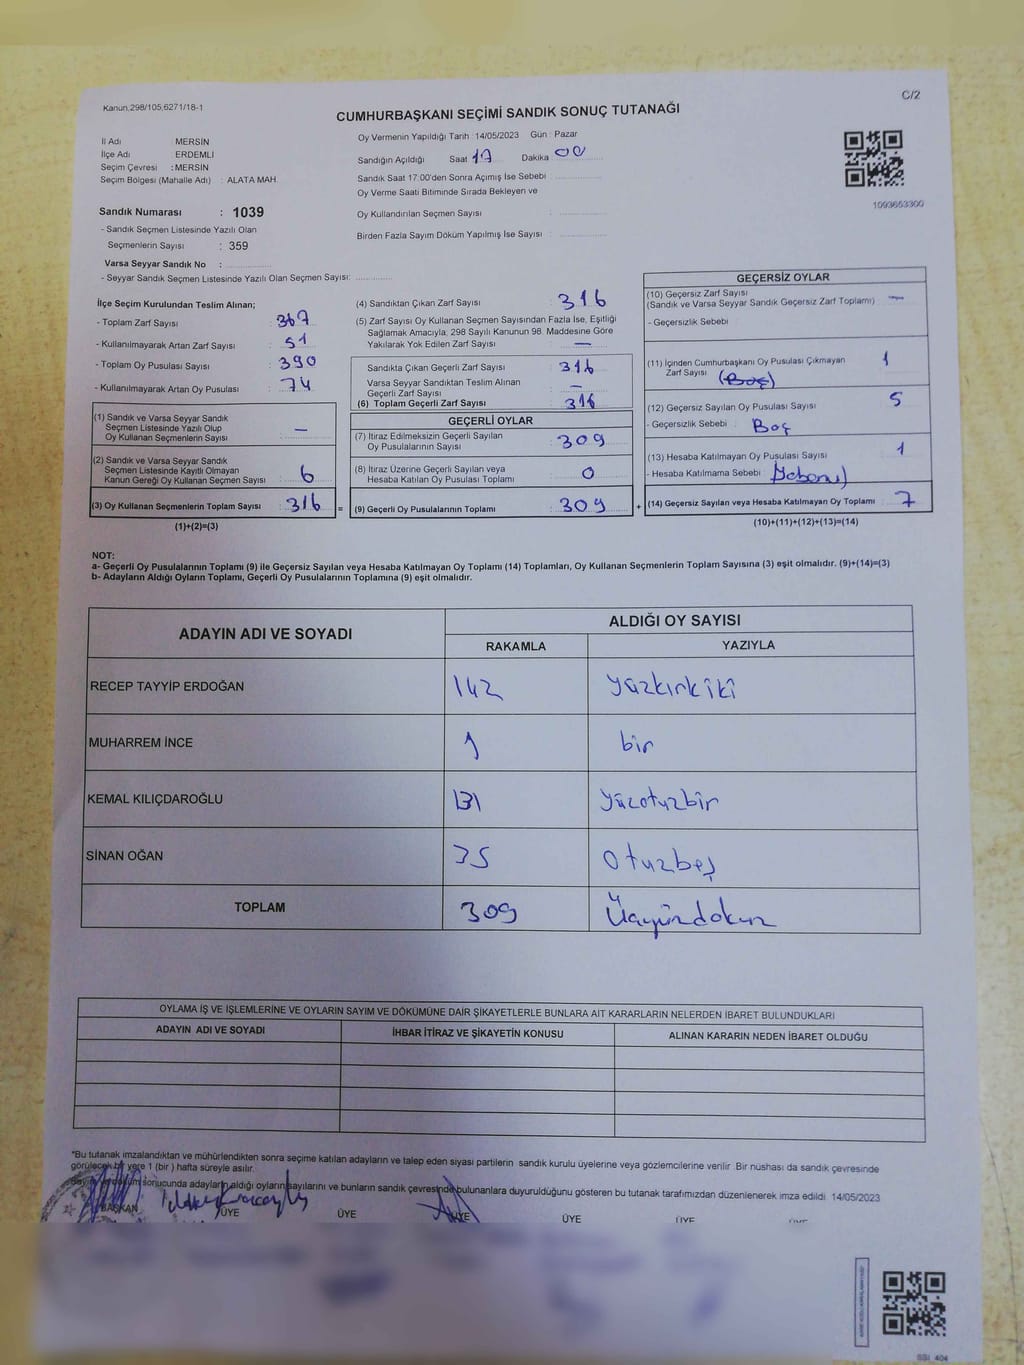 Kanun,298/105,6271/18-1
C/2
CUMHURBAŞKANI SEÇİMİ SANDIK SONUÇ TUTANAĞI
İl Adı : MERSİN
İlçe Adı : ERDEMLİ
Seçim Çevresi : MERSİN
Seçim Bölgesi (Mahalle Adı) : ALATA MAH.
Oy Vermenin Yapıldığı Tarih : 14/05/2023 Gün : Pazar
Sandığın Açıldığı Saat 17 Dakika 00
Sandık Saat 17:00'den Sonra Açımış İse Sebebi
Oy Verme Saati Bitiminde Sırada Bekleyen ve
Oy Kullandırılan Seçmen Sayısı :
Birden Fazla Sayım Döküm Yapılmış İse Sayısı :
1093653300
Sandık Numarası : 1039
- Sandık Seçmen Listesinde Yazılı Olan
Seçmenlerin Sayısı : 359
Varsa Seyyar Sandık No :
- Seyyar Sandık Seçmen Listesinde Yazılı Olan Seçmen Sayısı:
İlçe Seçim Kurulundan Teslim Alınan;
- Toplam Zarf Sayısı : 367
- Kullanılmayarak Artan Zarf Sayısı : 51
- Toplam Oy Pusulası Sayısı : 390
- Kullanılmayarak Artan Oy Pusulası : 74
(1) Sandık ve Varsa Seyyar Sandık
Seçmen Listesinde Yazılı Olup
Oy Kullanan Seçmenlerin Sayısı : —
(2) Sandık ve Varsa Seyyar Sandık
Seçmen Listesinde Kayıtlı Olmayan
Kanun Gereği Oy Kullanan Seçmen Sayısı : 6
(3) Oy Kullanan Seçmenlerin Toplam Sayısı : 316
(1)+(2)=(3)
(4) Sandıktan Çıkan Zarf Sayısı : 316
(5) Zarf Sayısı Oy Kullanan Seçmen Sayısından Fazla İse, Eşitliği
Sağlamak Amacıyla, 298 Sayılı Kanunun 98. Maddesine Göre
Yakılarak Yok Edilen Zarf Sayısı : —
Sandıkta Çıkan Geçerli Zarf Sayısı : 316
Varsa Seyyar Sandıktan Teslim Alınan
Geçerli Zarf Sayısı : —
(6) Toplam Geçerli Zarf Sayısı : 316
GEÇERLİ OYLAR
(7) İtiraz Edilmeksizin Geçerli Sayılan
Oy Pusulalarının Sayısı : 309
(8) İtiraz Üzerine Geçerli Sayılan veya
Hesaba Katılan Oy Pusulası Toplamı : 0
= (9) Geçerli Oy Pusulalarının Toplamı : 309 +
GEÇERSİZ OYLAR
(10) Geçersiz Zarf Sayısı
(Sandık ve Varsa Seyyar Sandık Geçersiz Zarf Toplamı) : —
- Geçersizlik Sebebi
(11) İçinden Cumhurbaşkanı Oy Pusulası Çıkmayan
Zarf Sayısı : 1
(Boş)
(12) Geçersiz Sayılan Oy Pusulası Sayısı : 5
- Geçersizlik Sebebi : Boş
(13) Hesaba Katılmayan Oy Pusulası Sayısı : 1
- Hesaba Katılmama Sebebi :
(14) Geçersiz Sayılan veya Hesaba Katılmayan Oy Toplamı : 7
(10)+(11)+(12)+(13)=(14)
NOT:
a- Geçerli Oy Pusulalarının Toplamı (9) ile Geçersiz Sayılan veya Hesaba Katılmayan Oy Toplamı (14) Toplamları, Oy Kullanan Seçmenlerin Toplam Sayısına (3) eşit olmalıdır. (9)+(14)=(3)
b- Adayların Aldığı Oyların Toplamı, Geçerli Oy Pusulalarının Toplamına (9) eşit olmalıdır.
ADAYIN ADI VE SOYADI
ALDIĞI OY SAYISI
RAKAMLA YAZIYLA
RECEP TAYYİP ERDOĞAN 142 yüzkırkiki
MUHARREM İNCE 1 bir
KEMAL KILIÇDAROĞLU 131 yüzotuzbir
SİNAN OĞAN 35 otuzbeş
TOPLAM 309 Üçyüzdokuz
OYLAMA İŞ VE İŞLEMLERİNE VE OYLARIN SAYIM VE DÖKÜMÜNE DAİR ŞİKAYETLERLE BUNLARA AİT KARARLARIN NELERDEN İBARET BULUNDUKLARI
ADAYIN ADI VE SOYADI İHBAR İTİRAZ VE ŞİKAYETİN KONUSU ALINAN KARARIN NEDEN İBARET OLDUĞU
*Bu tutanak imzalandıktan ve mühürlendikten sonra seçime katılan adayların ve talep eden siyasi partilerin sandık kurulu üyelerine veya gözlemcilerine verilir. Bir nüshası da sandık çevresinde
görülecek bir yere 1 (bir ) hafta süreyle asılır.
sonucunda adayların aldığı oyların sayılarını ve bunların sandık çevresinde bulunanlara duyurulduğunu gösteren bu tutanak tarafımızdan düzenlenerek imza edildi. 14/05/2023
BAŞKAN ÜYE ÜYE ÜYE ÜYE ÜYE ÜYE
SBI 404